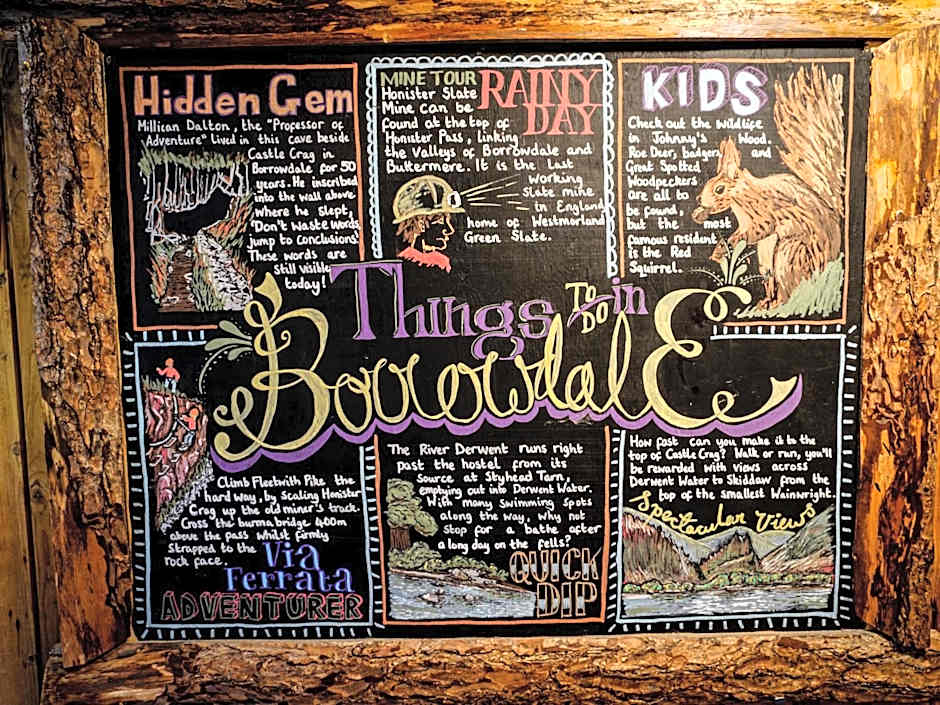 Hidden Gem
Millican Dalton, the "Professor of
Adventure" lived in this cave beside
Castle Crag in
Borrowdale for 50
years. He inscribed
into the wall above
where he slept,
"Don't waste words,
jump to conclusions"
These words are
still visible
today!
MINE TOUR
RAINY
DAY
Honister Slate
Mine can be
found at the top of
Honister Pass, linking
the Valleys of Borrowdale and
Buttermere. It is the last
working
slate mine
in England
home of Westmorland
Green Slate.
KIDS
Check out the wildlife
in Johnny's Wood.
Roe Deer, badgers and
Great Spotted
Woodpeckers
are all to
be found,
but the most
famous resident
is the Red
Squirrel.
Things TO DO in
BorrowdalE
Climb Fleetwith Pike the
hard way, by scaling Honister
Crag up the old miner's track.
Cross the burma bridge 400m
above the pass whilst firmly
strapped to the
rock face.
Via
Ferrata
ADVENTURER
The River Derwent runs right
past the hostel from its
source at Styhead Tarn,
emptying out into Derwent Water.
With many swimming spots
along the way, why not
stop for a bathe after
a long day on the fells?
QUICK
DIP
How fast can you make it to the
top of Castle Crag? Walk or run, you'll
be rewarded with views across
Derwent Water to Skiddaw from the
top of the smallest Wainwright.
Spectacular Views